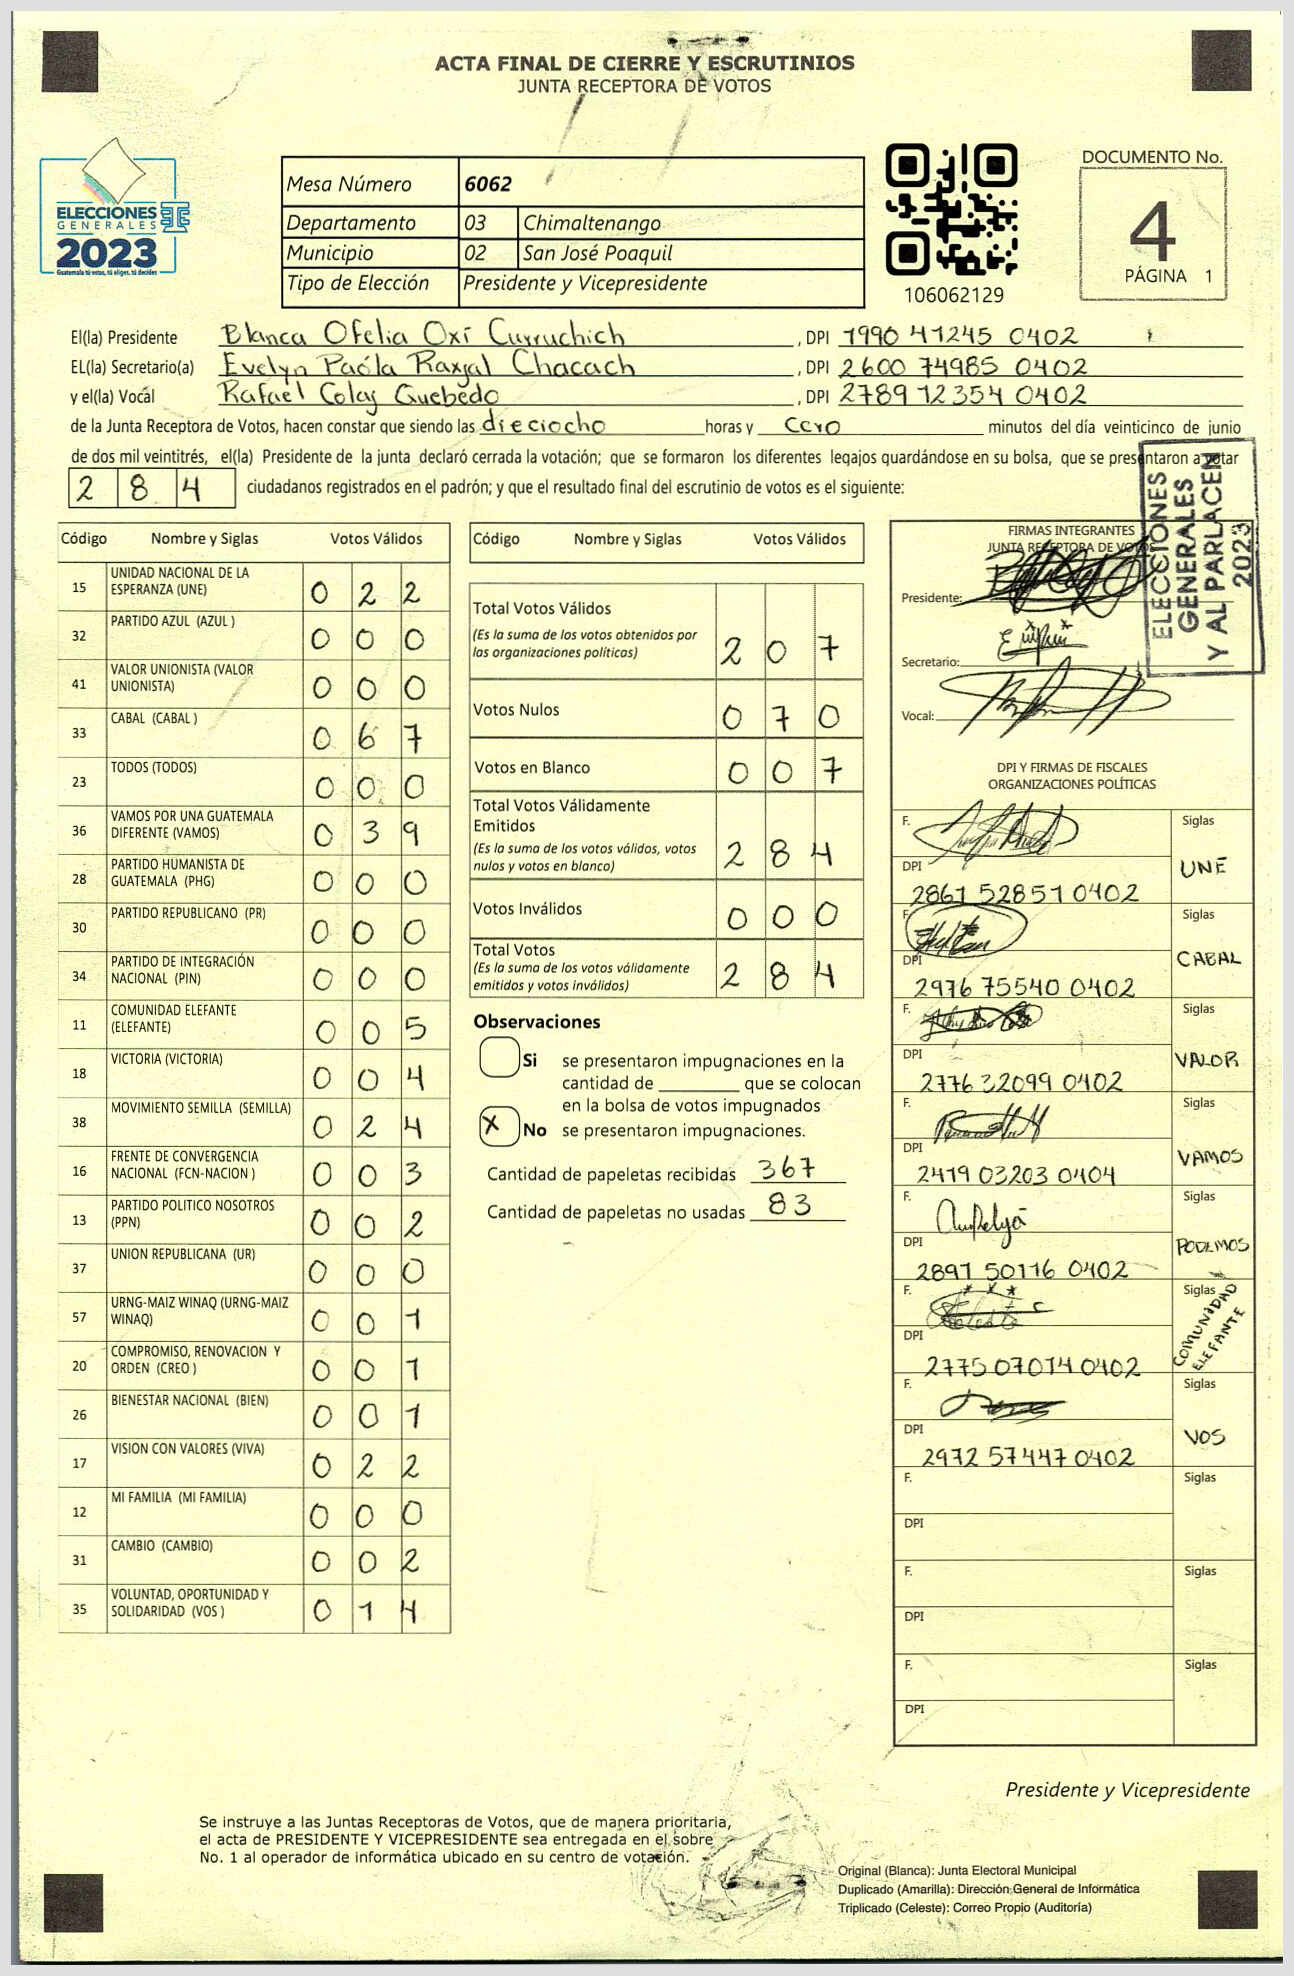 ACTA FINAL DE CIERRE Y ESCRUTINIOS
JUNTA RECEPTORA DE VOTOS
ELECCIONES
GENERALES
2023
Guatemala tú votas, tú eliges, tú decides
Mesa Número 6062
Departamento 03 Chimaltenango
Municipio 02 San José Poaquil
Tipo de Elección Presidente y Vicepresidente
106062129
DOCUMENTO No.
4
PÁGINA 1
El(la) Presidente Blanca Ofelia Oxí Curruchich, DPI 1990 41245 0402
EL(la) Secretario(a) Evelyn Paola Raxjal Chacach, DPI 2600 74985 0402
y el(la) Vocal Rafael Colaj Quebedo, DPI 2789 12354 0402
de la Junta Receptora de Votos, hacen constar que siendo las dieciocho horas y cero minutos del día veinticinco de junio
de dos mil veintitrés, el(la) Presidente de la junta declaró cerrada la votación; que se formaron los diferentes legajos guardándose en su bolsa, que se presentaron a votar
2 8 4 ciudadanos registrados en el padrón; y que el resultado final del escrutinio de votos es el siguiente:
ELECCIONES
GENERALES
Y AL PARLACEN
2023
Código Nombre y Siglas Votos Válidos
15 UNIDAD NACIONAL DE LA ESPERANZA (UNE) 0 2 2
32 PARTIDO AZUL (AZUL ) 0 0 0
41 VALOR UNIONISTA (VALOR UNIONISTA) 0 0 0
33 CABAL (CABAL ) 0 6 7
23 TODOS (TODOS) 0 0 0
36 VAMOS POR UNA GUATEMALA DIFERENTE (VAMOS) 0 3 9
28 PARTIDO HUMANISTA DE GUATEMALA (PHG) 0 0 0
30 PARTIDO REPUBLICANO (PR) 0 0 0
34 PARTIDO DE INTEGRACIÓN NACIONAL (PIN) 0 0 0
11 COMUNIDAD ELEFANTE (ELEFANTE) 0 0 5
18 VICTORIA (VICTORIA) 0 0 4
38 MOVIMIENTO SEMILLA (SEMILLA) 0 2 4
16 FRENTE DE CONVERGENCIA NACIONAL (FCN-NACION ) 0 0 3
13 PARTIDO POLITICO NOSOTROS (PPN) 0 0 2
37 UNION REPUBLICANA (UR) 0 0 0
57 URNG-MAIZ WINAQ (URNG-MAIZ WINAQ) 0 0 1
20 COMPROMISO, RENOVACION Y ORDEN (CREO ) 0 0 1
26 BIENESTAR NACIONAL (BIEN) 0 0 1
17 VISION CON VALORES (VIVA) 0 2 2
12 MI FAMILIA (MI FAMILIA) 0 0 0
31 CAMBIO (CAMBIO) 0 0 2
35 VOLUNTAD, OPORTUNIDAD Y SOLIDARIDAD (VOS ) 0 1 4
Código Nombre y Siglas Votos Válidos
Total Votos Válidos
(Es la suma de los votos obtenidos por las organizaciones políticas) 2 0 7
Votos Nulos 0 7 0
Votos en Blanco 0 0 7
Total Votos Válidamente Emitidos
(Es la suma de los votos válidos, votos nulos y votos en blanco) 2 8 4
Votos Inválidos 0 0 0
Total Votos
(Es la suma de los votos válidamente emitidos y votos inválidos) 2 8 4
Observaciones
Si se presentaron impugnaciones en la
cantidad de ________ que se colocan
en la bolsa de votos impugnados
X No se presentaron impugnaciones.
Cantidad de papeletas recibidas 367
Cantidad de papeletas no usadas 83
FIRMAS INTEGRANTES
JUNTA RECEPTORA DE VOTOS
Presidente:
Secretario:
Vocal:
DPI Y FIRMAS DE FISCALES
ORGANIZACIONES POLÍTICAS
F. Siglas
DPI 2861 52851 0402 UNE
F. Siglas
DPI 2976 75540 0402 CABAL
F. Siglas
DPI 2776 32099 0402 VALOR
F. Siglas
DPI 2479 03203 0404 VAMOS
F. Siglas
DPI 2897 50116 0402 PODEMOS
F. Siglas
DPI 2775 07014 0402 COMUNIDAD ELEFANTE
F. Siglas
DPI 2972 57447 0402 VOS
F. Siglas
DPI
F. Siglas
DPI
F. Siglas
DPI
Presidente y Vicepresidente
Se instruye a las Juntas Receptoras de Votos, que de manera prioritaria,
el acta de PRESIDENTE Y VICEPRESIDENTE sea entregada en el sobre
No. 1 al operador de informática ubicado en su centro de votación.
Original (Blanca): Junta Electoral Municipal
Duplicado (Amarilla): Dirección General de Informática
Triplicado (Celeste): Correo Propio (Auditoría)